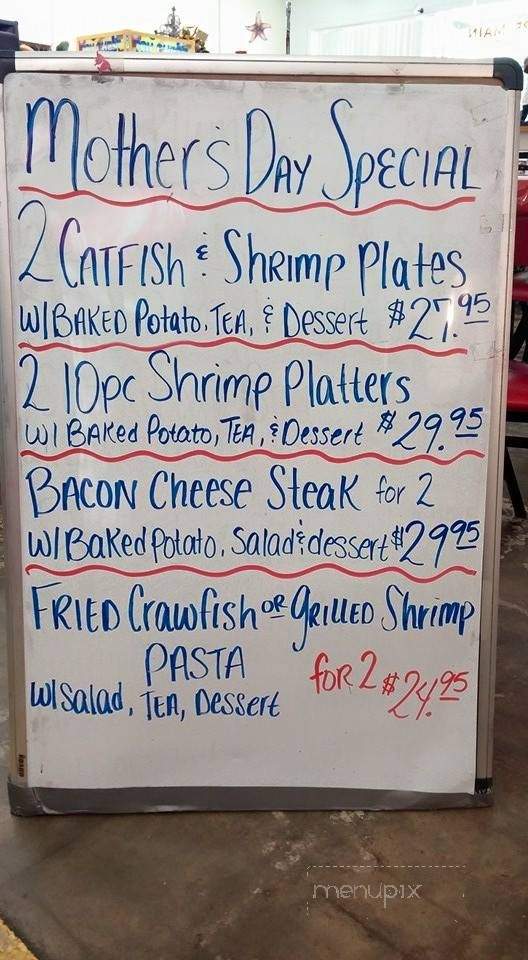 Mother's Day Special
2 Catfish & Shrimp Plates
W/Baked Potato, Tea, & Dessert $27.95
2 10pc Shrimp Platters
W/ Baked Potato, Tea, & Dessert $29.95
Bacon Cheese Steak for 2
W/Baked Potato, Salad & dessert $29.95
Fried Crawfish or Grilled Shrimp
Pasta for 2 $24.95
W/Salad, Tea, Dessert
menupix